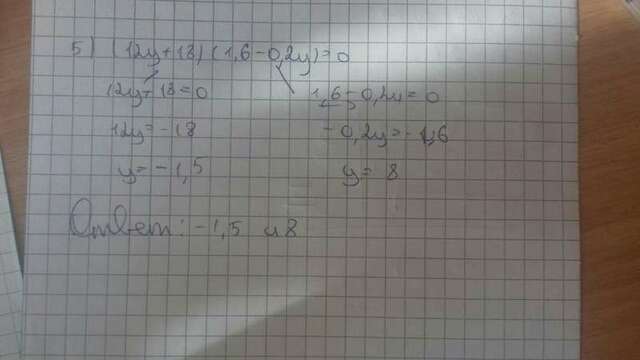 5) (12y+18) (1,6-0,2y)=0
12y+18=0 1,6-0,2y=0
12y=-18 -0,2y=-1,6
y=-1,5 y=8
Ответ: -1,5 и 8